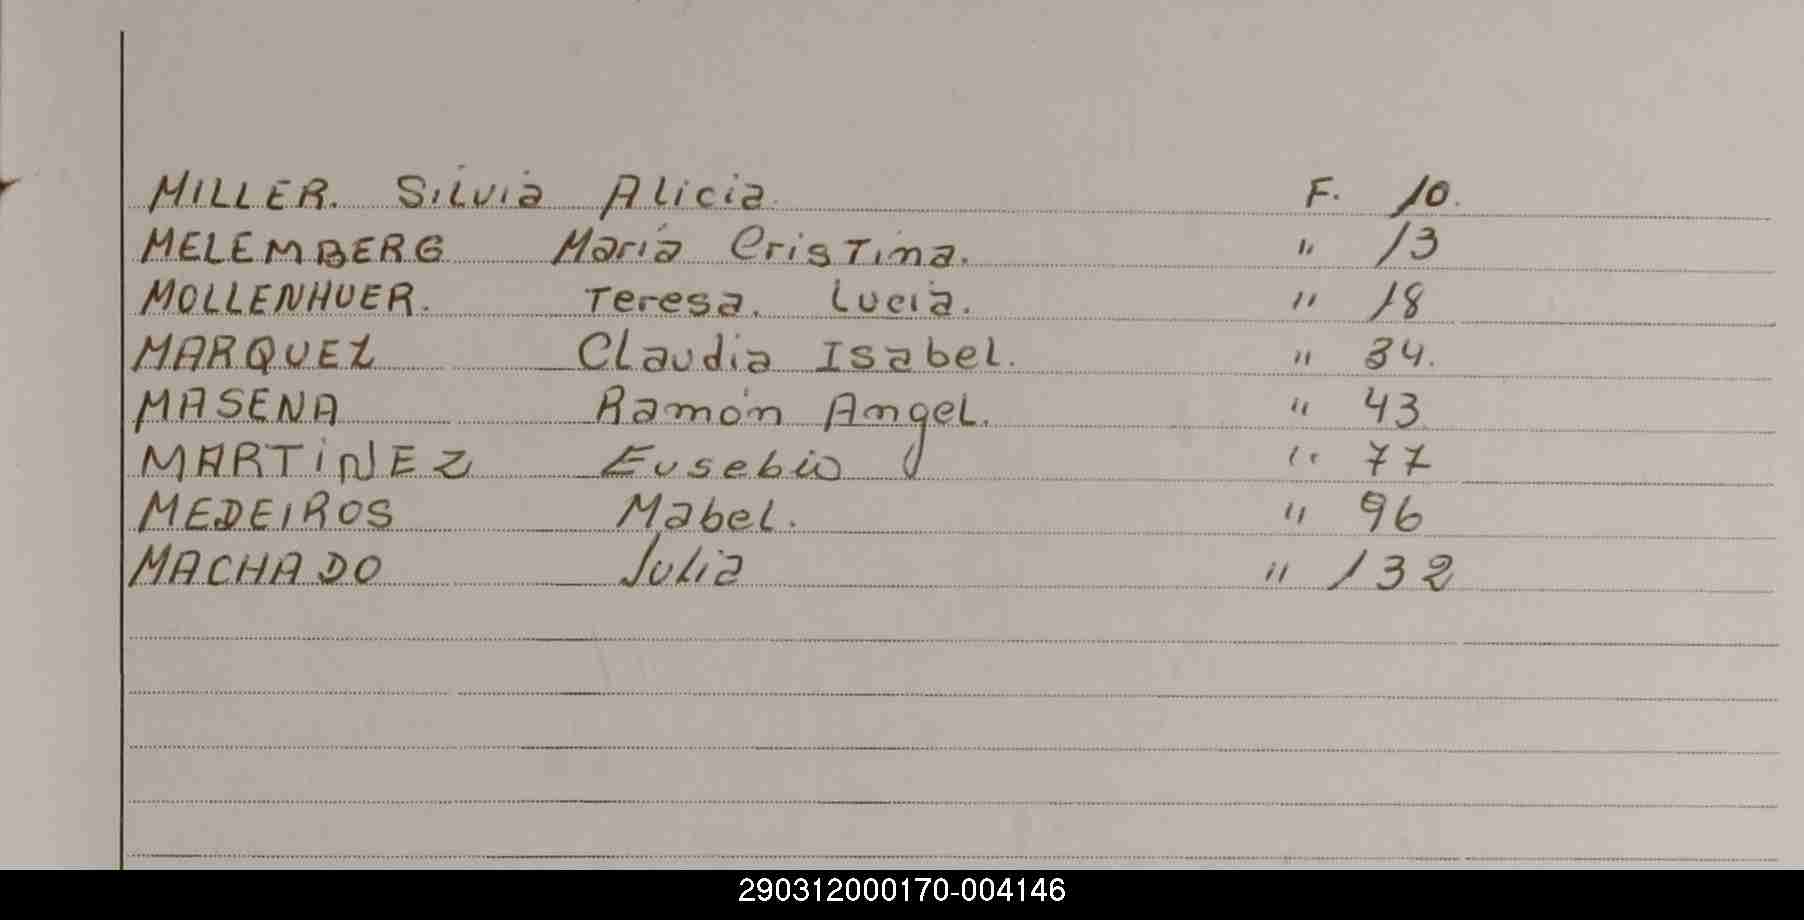 MILLER. Silvia Alicia. F. 10.
MELEMBERG María Cristina. " 13
MOLLENHUER. Teresa. Lucía. " 18
MARQUEZ Claudia Isabel. " 34.
MASENA Ramón Angel. " 43
MARTiNEZ Eusebio " 77
MEDEIROS Mabel. " 96
MACHADO Julia " 132
290312000170-004146